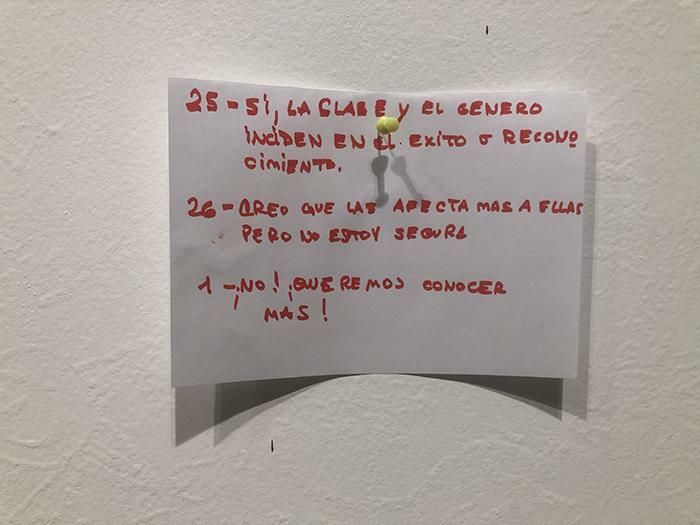 25 - SI, LA CLASE Y EL GENERO
INCIDEN EN EL EXITO O RECONO
CIMIENTO.
26 - CREO QUE LAS AFECTA MAS A ELLAS
PERO NO ESTOY SEGURA
1 - ¡NO! ¡QUEREMOS CONOCER
MAS!